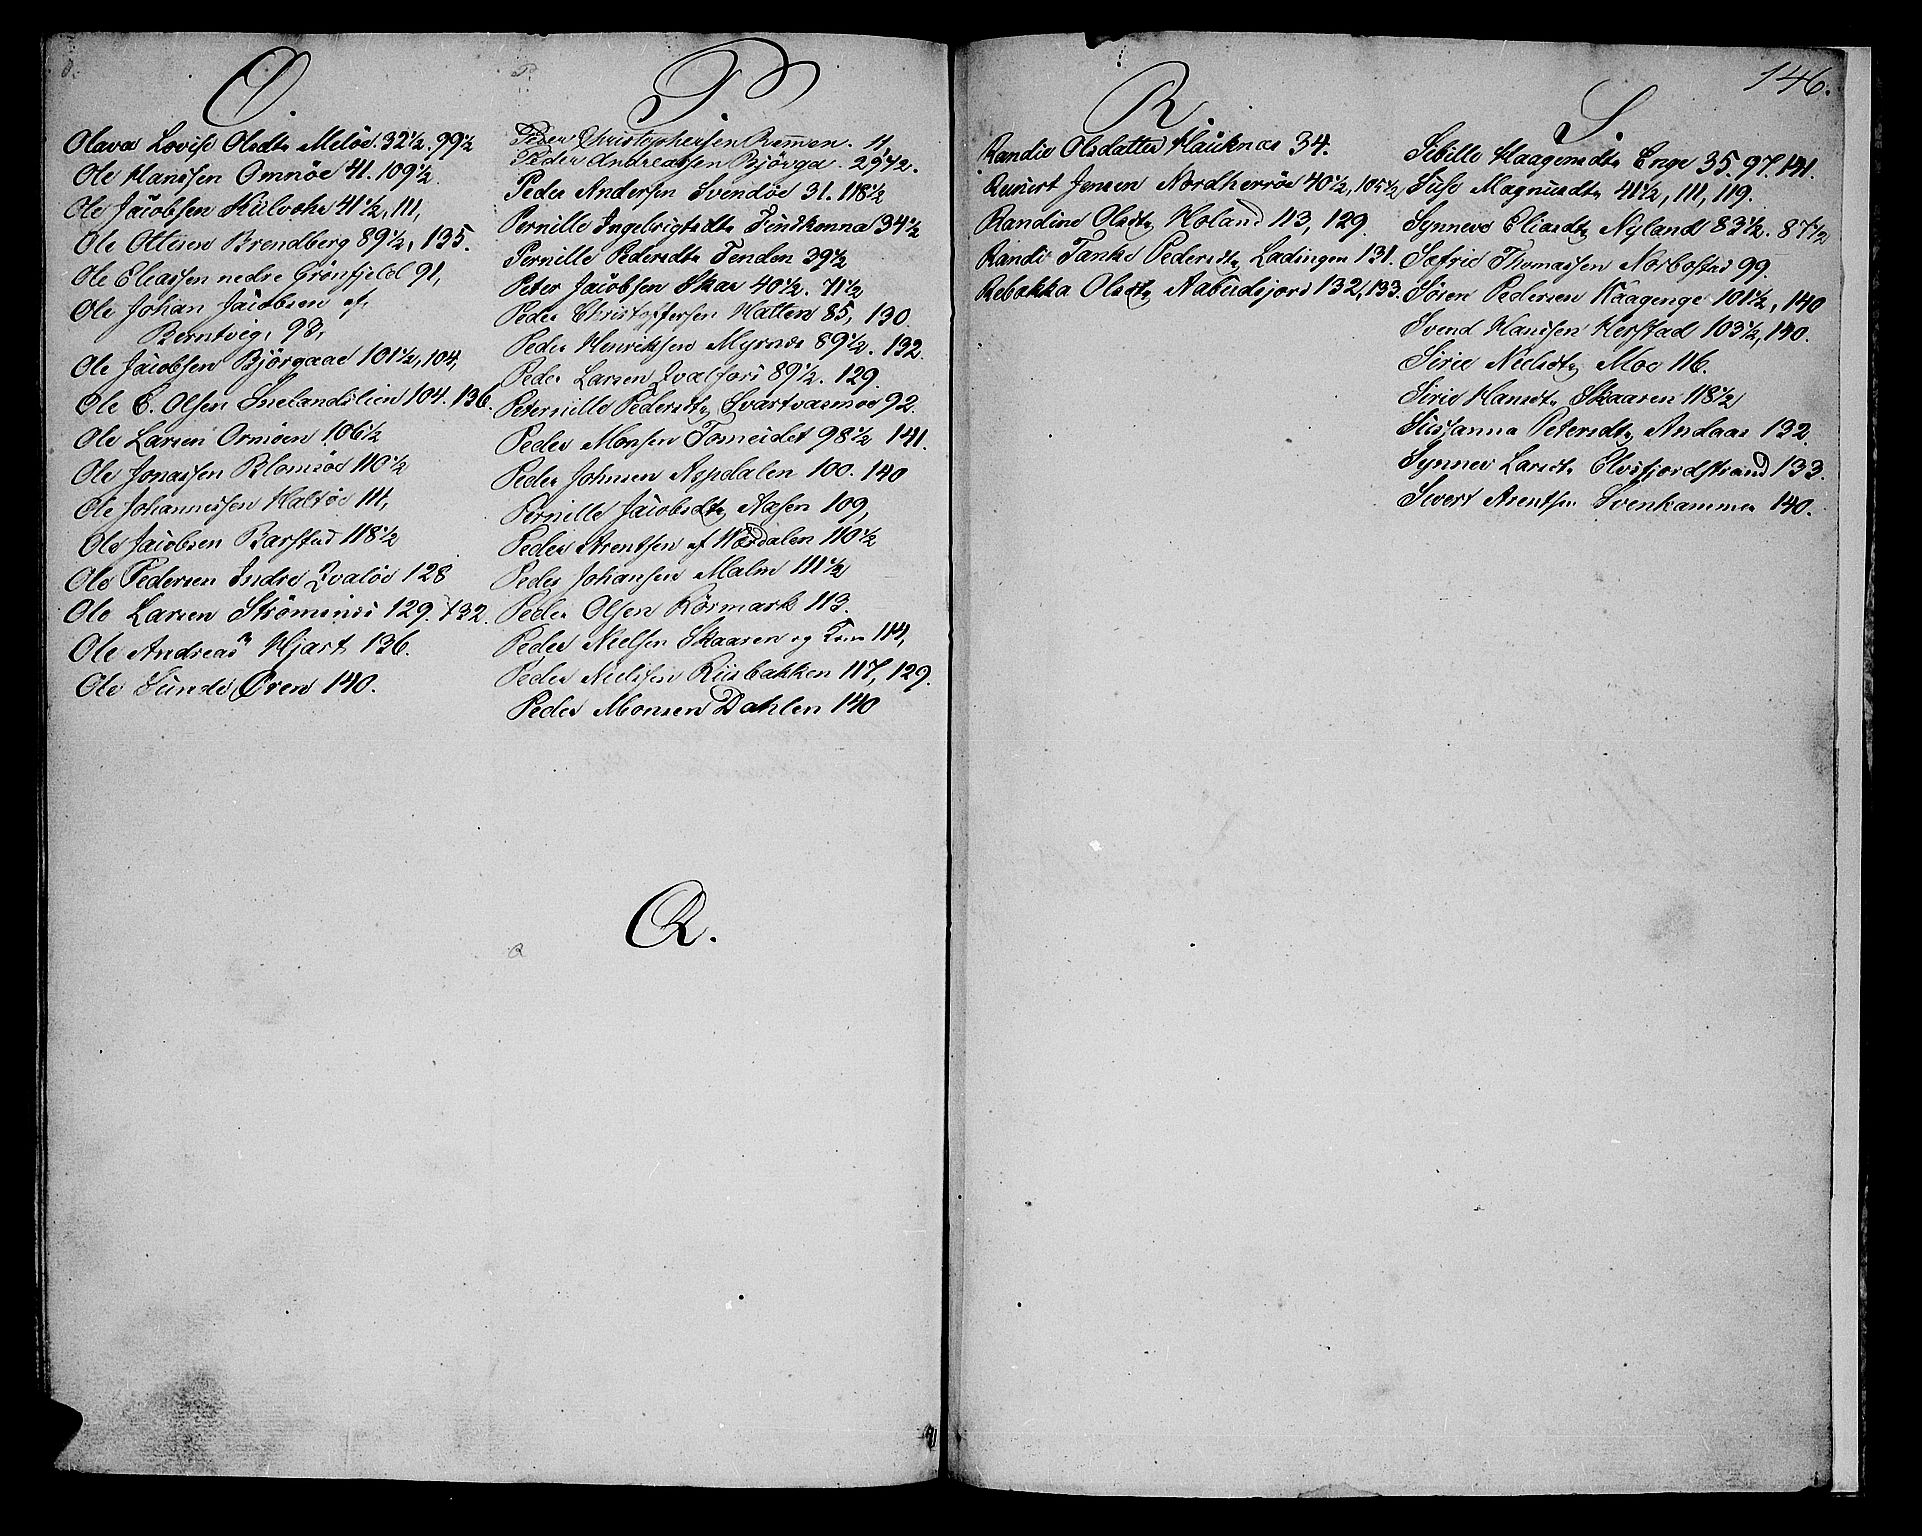 O.
Olava Lovise Olsdtr Meløe. 32½. 99½
Ole Hanssen Omnøe 41. 109½
Ole Jacobsen Kulvohs 41½, 111,
Ole Ottesen Brendberg 89½, 135.
Ole Eliassen nedre Grönfjeld 91,
Ole Johan Jacobsen af
Berntvig, 98,
Ole Jacobsen Bjørgaae 101½, 104,
Ole C. Olsen Snelandslien 104. 136.
Ole Larsen Ormøen 106½
Ole Jonassen Blomsøe 110½
Ole Johannessen Haltøe 111,
Ole Jacobsen Barstad 118½
Ole Pedersen Indre Qvaløe 128
Ole Larsen Strømsnes 129. 132.
Ole Andreas Hjart 136.
Ole Sunde, Øren 140.
P.
Peder Christophersen Remmen. 11,
Peder Andreassen Bjövga. 29, 42.
Peder Andersen Svendøe 31. 118½
Pernille Ingebrigtsdtr Findkonna 34½
Pernille Pedersdtr Fenden 39½
Peter Jacobsen Skar 40½. 71½
Peder Christoffersen Hatten 85, 130.
Peder Henriksen Myrnes 89½. 132.
Peder Larsen Qvalfors 89½. 129.
Peternille Pedersdtr Svartvasmoe 92.
Peder Monsen Tomeidet 98½ 141.
Peder Johnsen Aspdalen 100. 140
Pernille Jacobsdtr Aasen 109,
Peder Arentsen af Werdalen 110½
Peder Johansen Malm 111½
Peder Olsen Rörmark 113.
Peder Nielsen Skaaren og Kone 114,
Peder Nielsen Riisbakken 117, 129.
Peder Monsen Dahlen 140
Q.
146.
R
Randie Olsdatter Hauknes 34.
Reinert Jensen Nordherrøe 40½, 105½
Randine Olsdtr Holand 113, 129.
Randi Tanke Pedersdtr Lødingen 131.
Rebekka Olsdtr Nabudsjord 132, 133.
S.
Sibille Haagensdtr Enge 35. 97. 141.
Suse Magnusdtr 41½, 111, 119.
Synneve Eliasdtr Nyland 83½. 87½
Sefrie Thomassen Norbostad 99.
Sören Pedersen Kaagenge 101½, 140
Svend Hanssen Herstad 103½, 140.
Sirie Nielsdtr Moe 116.
Sirie Hansdtr Skaaren 118½
Susanna Petersdtr Andaas 132.
Synnev Larsdtr Elvefjordstrand 133.
Sivert Arentsen Svenkammen 140.